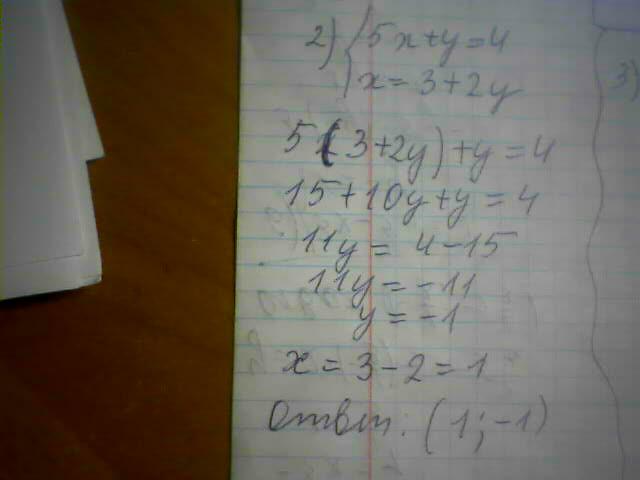 2) { 5x+y=4
x=3+2y
3)
5(3+2y)+y=4
15+10y+y=4
11y=4-15
11y=-11
y=-1
x=3-2=1
Ответ: (1;-1)